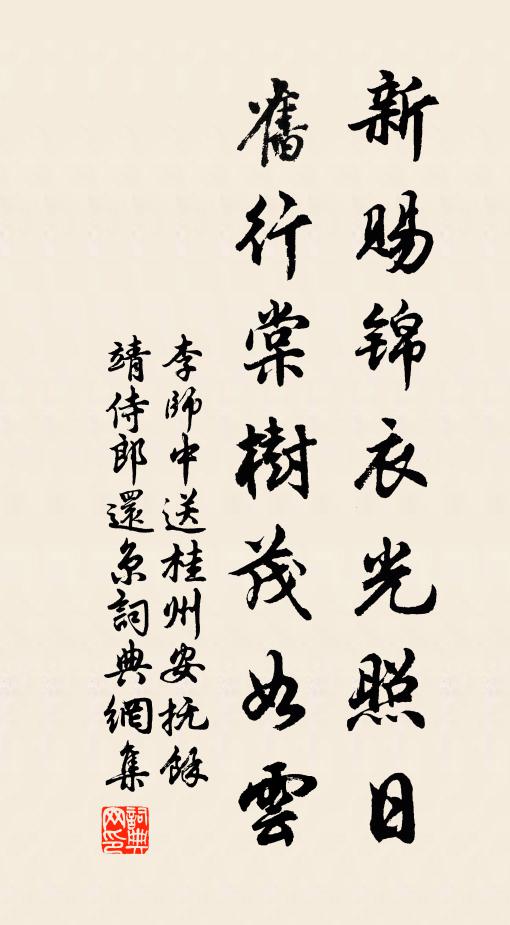 新賜錦衣光照日
舊行棠樹茂如雲
李師中送桂州安抚餘
靖侍郎還京詞典網集
詞典網印